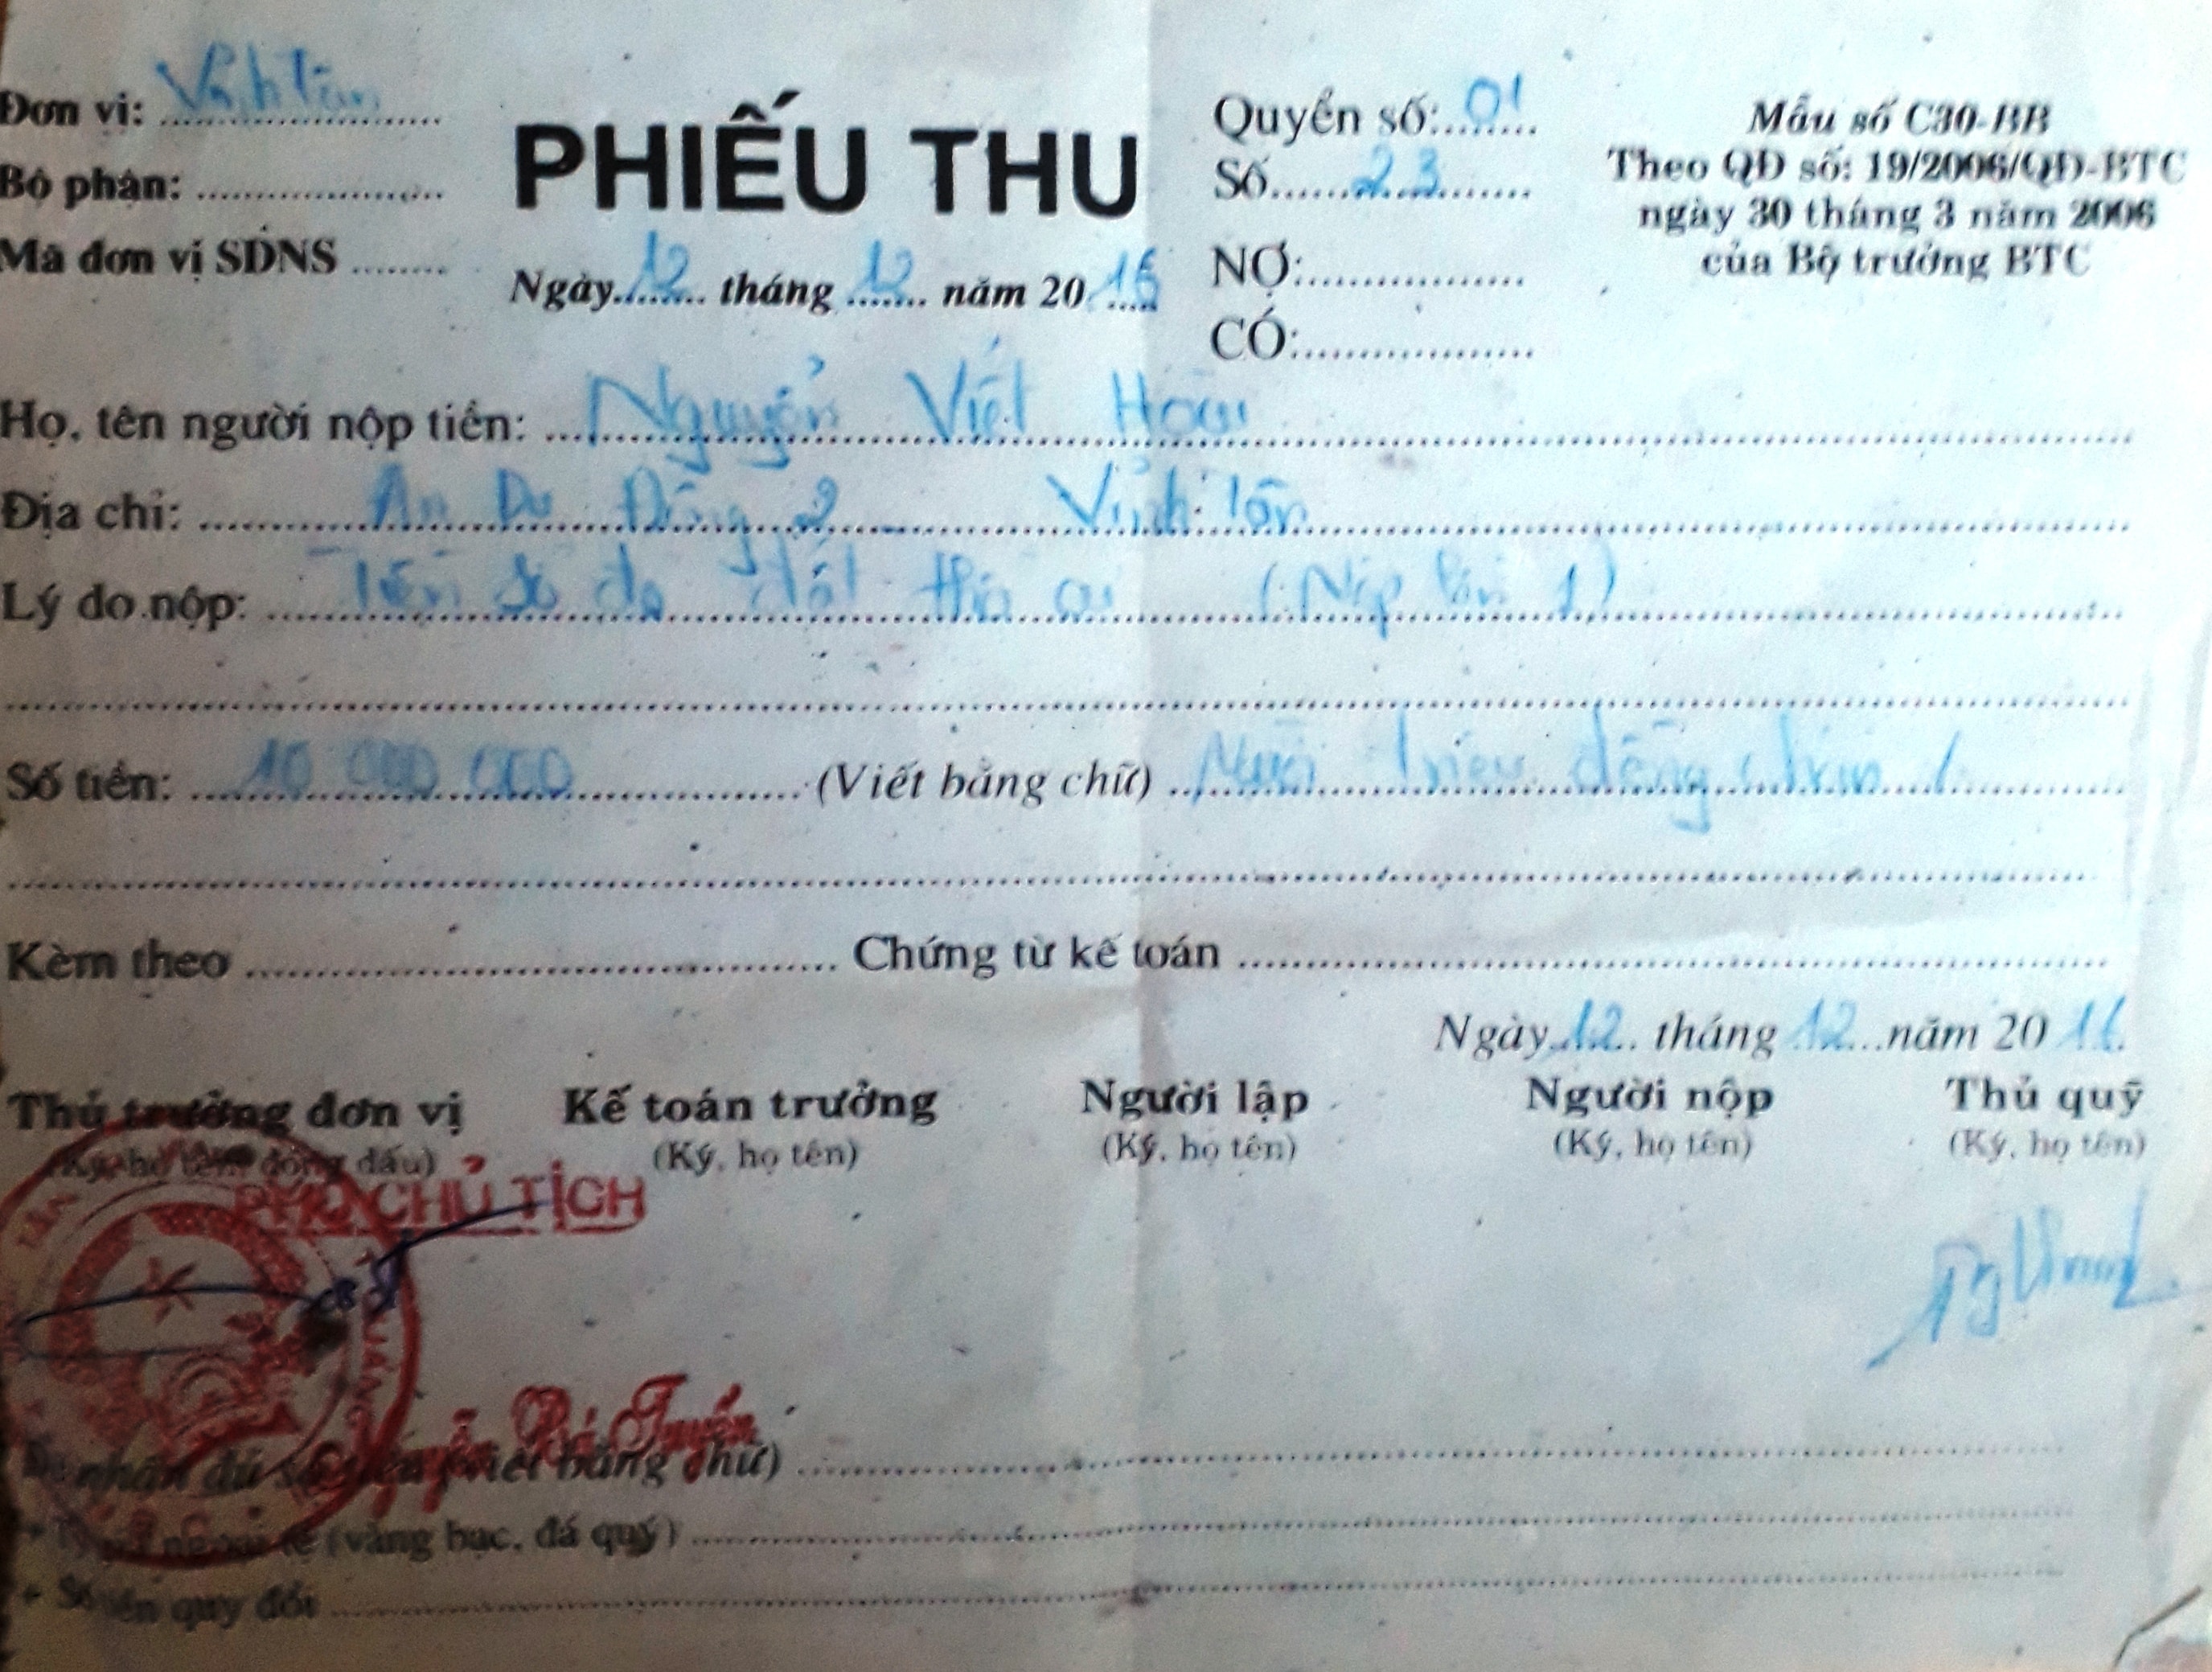 Đơn vị: Vĩnh Tân
Bộ phận:
Mã đơn vị SDNS
PHIẾU THU
Ngày 12 tháng 12 năm 2016
Quyển số: 01
Số 23
NỢ:
CÓ:
Mẫu số C30-BB
Theo QĐ số: 19/2006/QĐ-BTC
ngày 30 tháng 3 năm 2006
của Bộ trưởng BTC
Họ, tên người nộp tiền: Nguyễn Viết
Địa chỉ: An Do Đông 2 Vĩnh Tân
Lý do nộp: Tiền đất (Nộp lần 1)
Số tiền: 10 000 000 (Viết bằng chữ) Mười triệu đồng chẵn /
Kèm theo Chứng từ kế toán
Ngày 12 tháng 12 năm 2016
Thủ trưởng đơn vị Kế toán trưởng Người lập Người nộp Thủ quỹ
(Ký, họ tên, đóng dấu) (Ký, họ tên) (Ký, họ tên) (Ký, họ tên) (Ký, họ tên)
PHÓ CHỦ TỊCH
Nguyễn Bá Tuyến
nhận đủ số tiền (viết bằng chữ)
+ Tỷ giá ngoại tệ (vàng bạc, đá quý)
+ Số tiền quy đổi